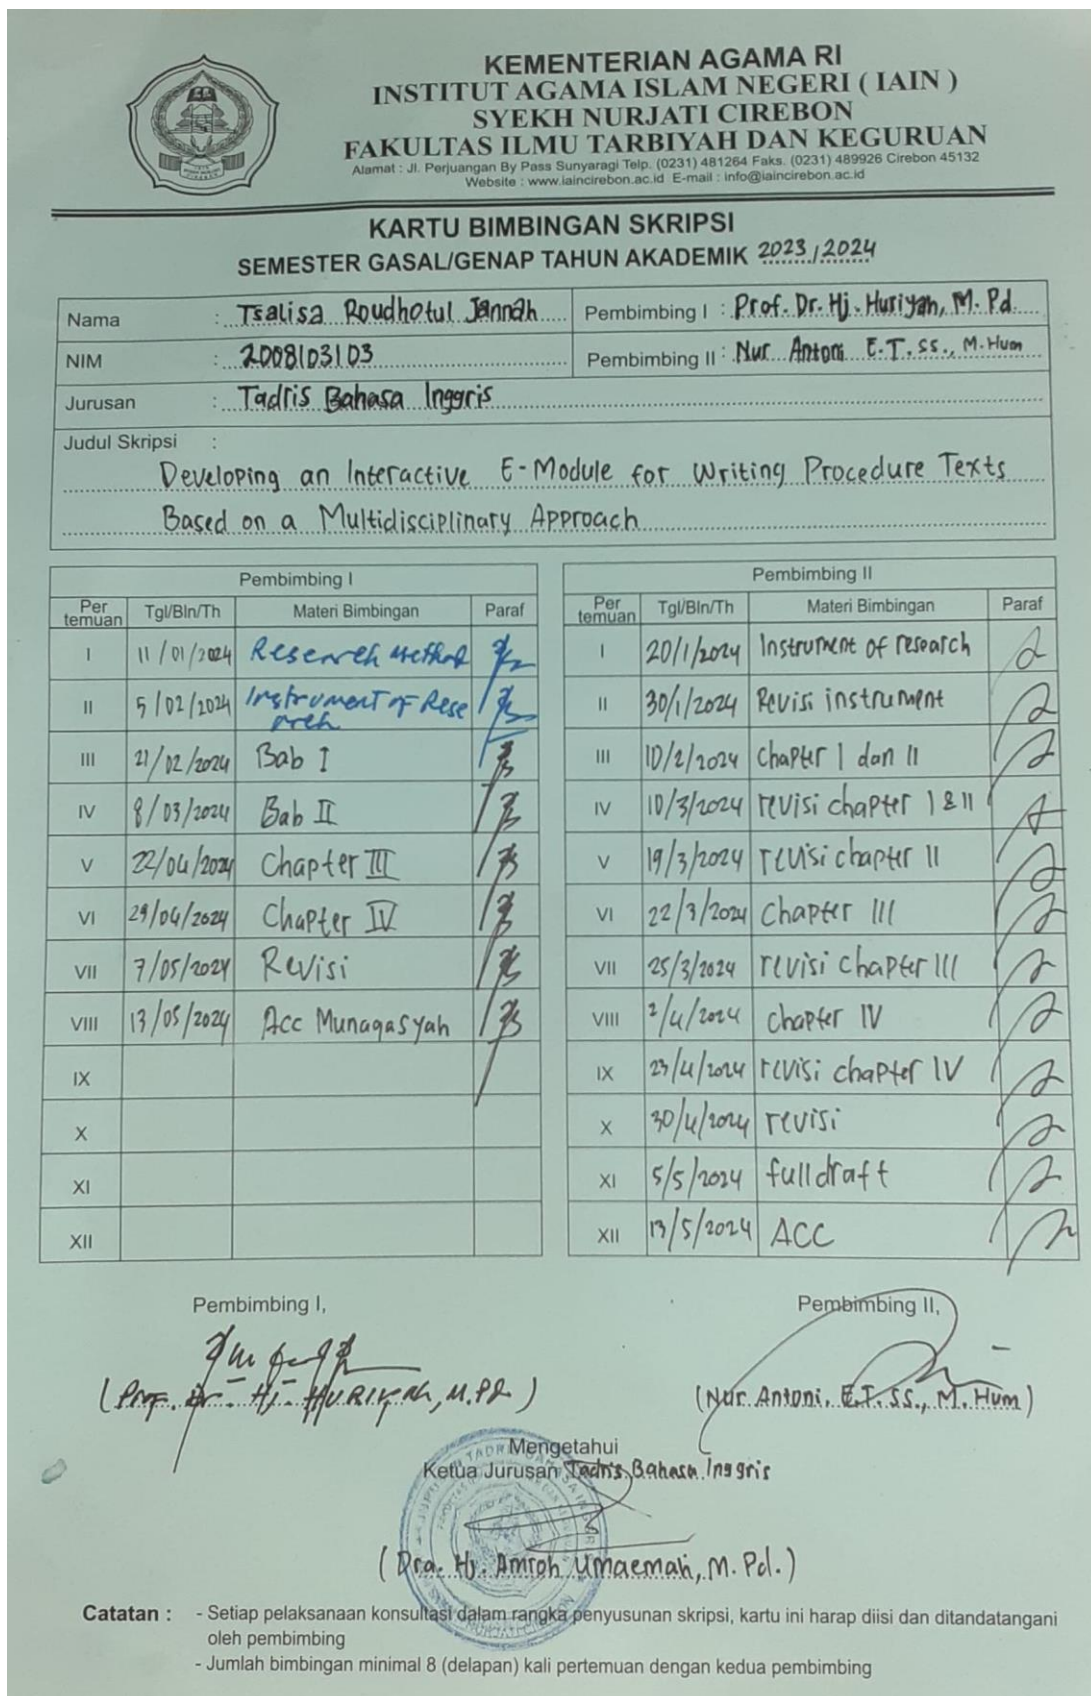 KEMENTERIAN AGAMA RI
INSTITUT AGAMA ISLAM NEGERI ( IAIN )
SYEKH NURJATI CIREBON
FAKULTAS ILMU TARBIYAH DAN KEGURUAN
Alamat : Jl. Perjuangan By Pass Sunyaragi Telp. (0231) 481264 Faks. (0231) 489926 Cirebon 45132
Website : www.iaincirebon.ac.id E-mail : info@iaincirebon.ac.id
KARTU BIMBINGAN SKRIPSI
SEMESTER GASAL/GENAP TAHUN AKADEMIK 2023/2024
Nama : Tsalisa Roudhotul Jannah
Pembimbing I : Prof. Dr. Hj. Huriyah, M. Pd.
NIM : 2008103103
Pembimbing II : Nur Antoni E.T. SS., M. Hum
Jurusan : Tadris Bahasa Inggris
Judul Skripsi :
Developing an Interactive E-Module for Writing Procedure Texts
Based on a Multidisciplinary Approach
Pembimbing I
Per temuan Tgl/Bln/Th Materi Bimbingan Paraf
I 11/01/2024 Research Method
II 5/02/2024 Instrument of Rese
arch
III 21/02/2024 Bab I
IV 8/03/2024 Bab II
V 22/04/2024 Chapter III
VI 29/04/2024 Chapter IV
VII 7/05/2024 Revisi
VIII 13/05/2024 Acc Munaqasyah
IX
X
XI
XII
Pembimbing II
Per temuan Tgl/Bln/Th Materi Bimbingan Paraf
I 20/1/2024 Instrument of research
II 30/1/2024 Revisi instrument
III 10/2/2024 Chapter I dan II
IV 10/3/2024 revisi chapter I & II
V 19/3/2024 revisi chapter II
VI 22/3/2024 Chapter III
VII 25/3/2024 revisi chapter III
VIII 2/4/2024 chapter IV
IX 23/4/2024 revisi chapter IV
X 30/4/2024 revisi
XI 5/5/2024 full draft
XII 13/5/2024 ACC
Pembimbing I,
Pembimbing II,
(Prof. Dr. Hj. HURIYAH, M.Pd.)
(Nur Antoni, E.T. SS., M. Hum)
Mengetahui
Ketua Jurusan Tadris Bahasa Inggris
(Dra. Hj. Amroh Umaemah, M. Pd.)
Catatan : - Setiap pelaksanaan konsultasi dalam rangka penyusunan skripsi, kartu ini harap diisi dan ditandatangani
oleh pembimbing
- Jumlah bimbingan minimal 8 (delapan) kali pertemuan dengan kedua pembimbing